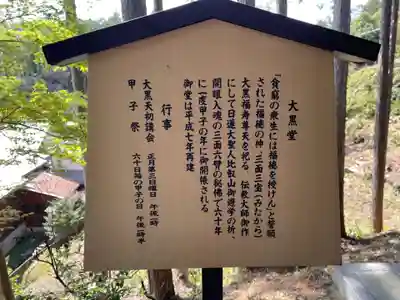 大黒堂
「貧窮の衆生には福徳を授けん」と誓願
された福徳の神「三面三宝(みたから)
大黒福寿尊天を祀る 伝教大師御作
にして日蓮大聖人比叡山御遊学の折、
開眼入魂の三面六臂の秘佛で六十年
に一度甲子の年に御開帳される
御堂は平成七年再建
行事
大黒天初講会 正月第三日曜日 午後一時
甲子祭 六十日毎の甲子の日 午後一時半